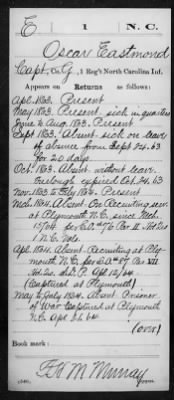 E | 1 | N.C.
Oscar Eastmond
Capt, Co. G, 1 Reg't North Carolina Inf.
Appears on Returns as follows:
Apl. 1863. Present
May 1863. Present sick in quarters
June to Aug. 1863. Present
Sept 1863. Absent sick on leave
of absence from Sept 24. 63
for 20 days.
Oct. 1863. Absent without leave
furlough expired Oct 24, 63
Nov. 1863 to Feby 1864. Present
Mch. 1864. Absent On Recruiting serv
at Plymouth N.C. since Mch
N.C. Vols.
Apl. 1864. Absent. Recruiting at Ply-
mouth N.C. per S.O.
Apl 12/64
(Captured at Plymouth)
May to July 1864. Absent Prisoner
of War Captured at Plymouth
N.C. Apl 64
(over)
Book mark:
Murray